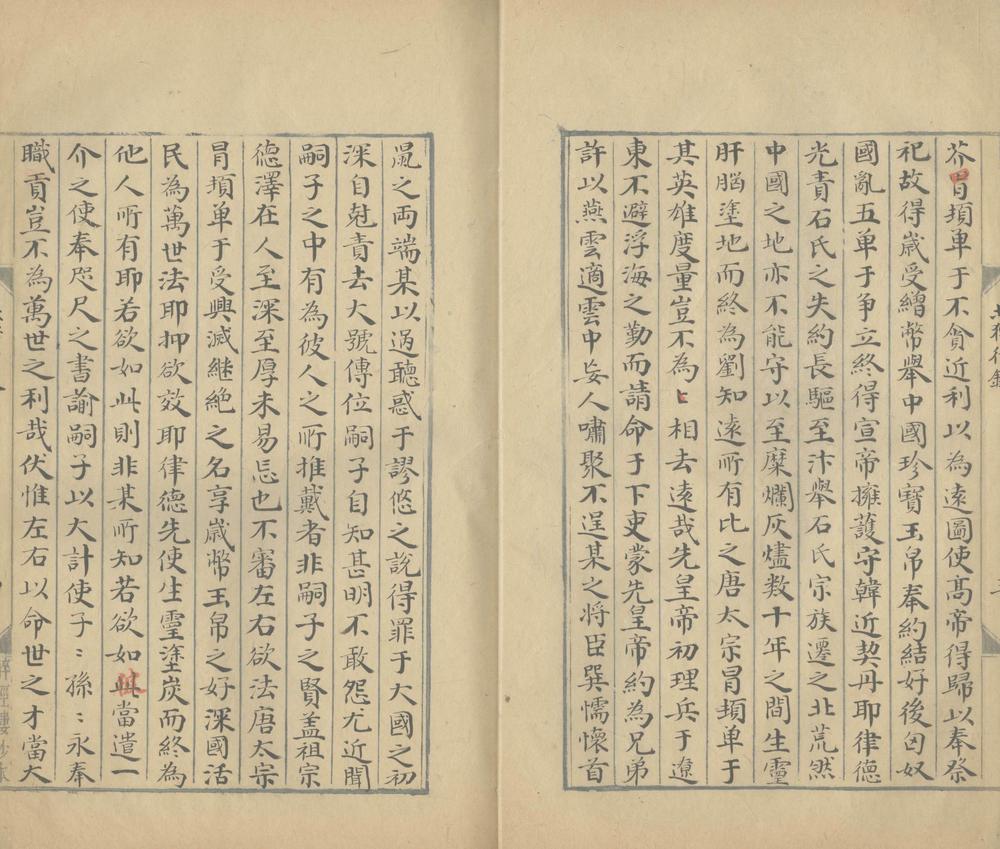 芥冒頊单于不貪近利以為遠圖使髙帝得歸以奉祭
祀故得歳受繒幣舉中國珍寶玉帛奉約結好後匈奴
國亂五单于争立終得宣帝擁護守韓近契丹耶律德
光責石氏之失約長驅至汴舉石氏宗族遷之北荒然
中國之地亦不能守以至糜爛灰燼数十年之間生靈
肝脳塗地而終為劉知遠所有比之唐太宗冒頊单于
其英雄度量豈不為相去遠哉先皇帝初理兵于遼
東不避浮海之勤而請命于下吏蒙先皇帝約為兄弟
許以燕雲適雲中妄人嘯聚不逞某之将臣巽懦懐首
䑕之両端某以過聴惑于謬悠之說得罪于大國之初
深自尅責去大號傳位嗣子自知甚明不敢怨尤近聞
嗣子之中有為彼人之所推戴者非嗣子之賢盖祖宗
德澤在人至深至厚未易忘也不審左右欲法唐太宗
冒頊单于受興滅継絶之名享歳幣玉帛之好深國活
民為萬世法耶抑欲效耶律德先使生靈塗炭而終為
他人所有耶若欲如此則非某所知若欲如彼當遣一
介之使奉咫尺之書諭嗣子以大計使子〻孫〻永奉
職貢豈不為萬世之利哉伏惟左右以命世之才當大
北狩行錄